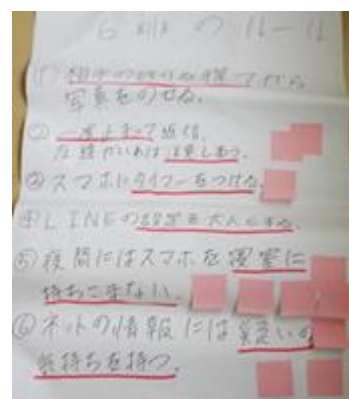 6班のルール
① 相手の許可を得てから
写真をのせる。
② 一度よまって返信。
③ スマホにタイマーをつける。
④ LINEの設定を大人にする。
⑤ 夜間にはスマホを寝室に
持ちこまない。
⑥ ネットの情報には疑いの
気持ちを持つ。